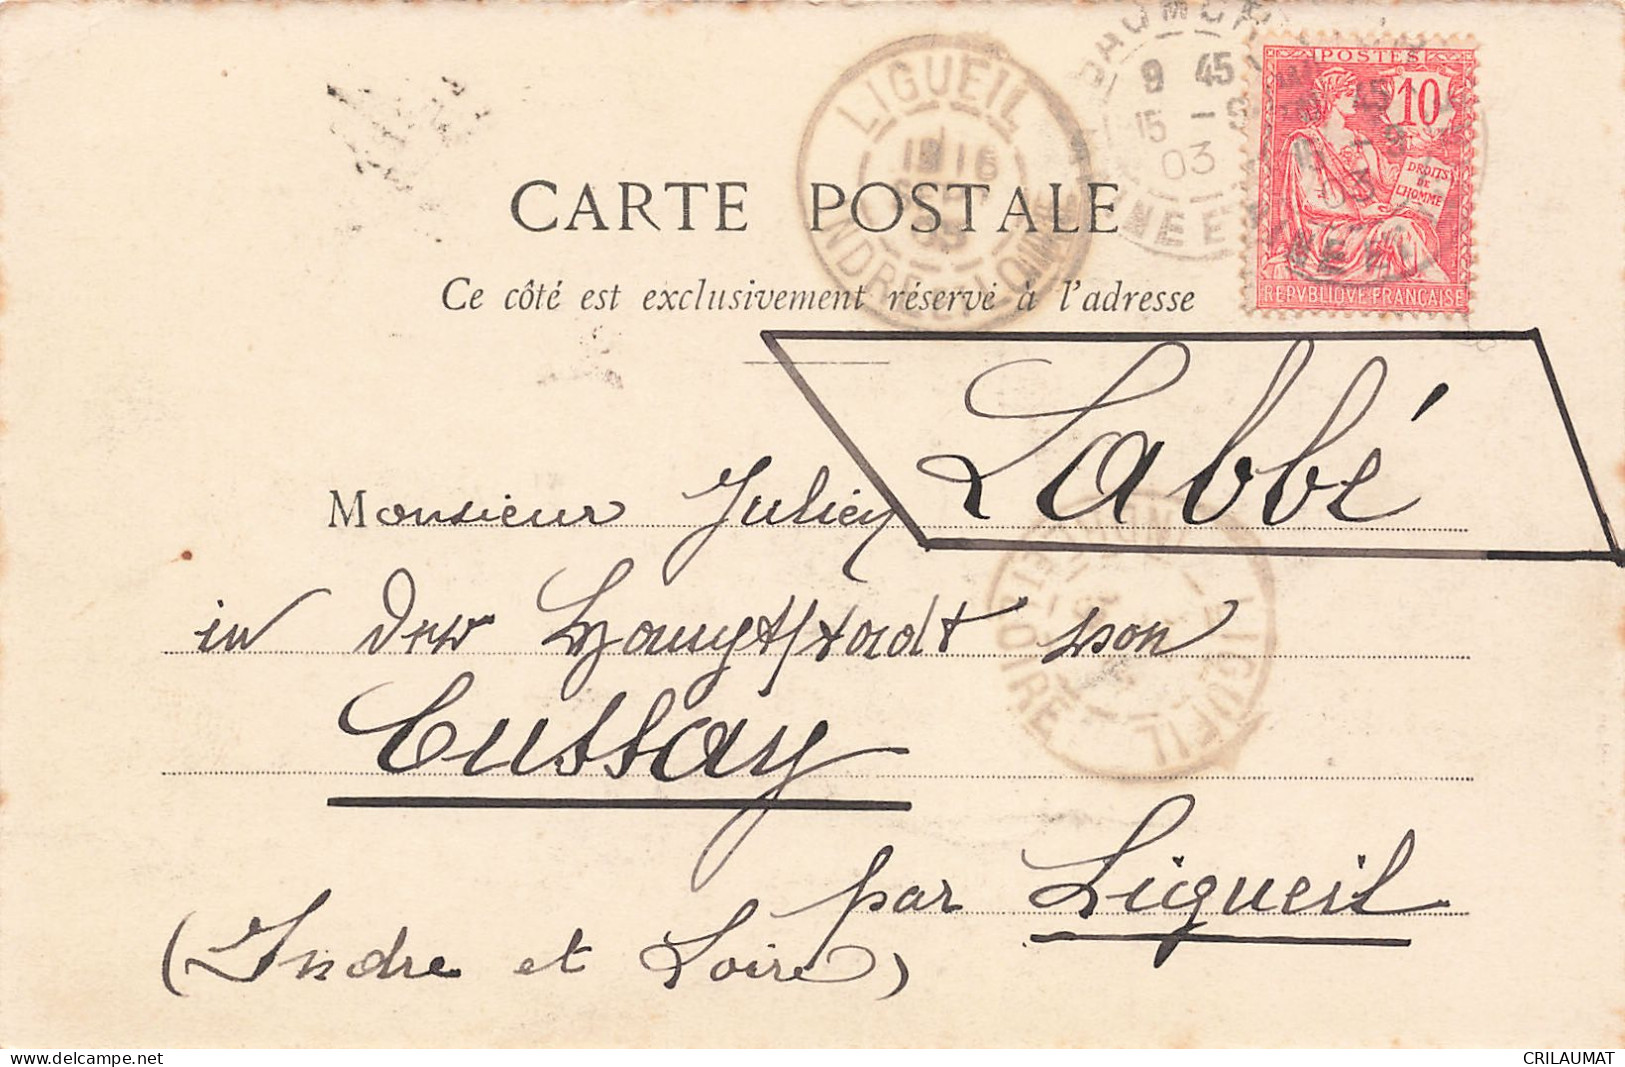 CARTE POSTALE
Ce côté est exclusivement réservé à l'adresse
LIGUEIL
16
03
INDRE LOIRE
9 45
15 - 9
03
POSTES
10
DROITS
DE
L'HOMME
REPVBLIQVE FRANÇAISE
Labbé
Monsieur Julien
in der Haupstadt von
Cussay
par Ligueil
(Indre et Loire)
LIGUEIL
LOIRE
delcampe.net
CRILAUMAT